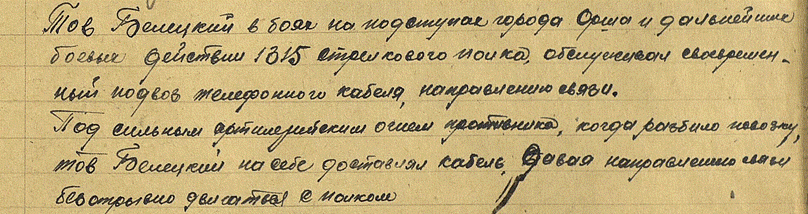 Тов Белецкий в боях на подступах города Орша и дальнейших
боевых действии 1315 стрелкового полка, обслуживал своевремен-
ный подвоз телефонного кабеля, направлению связи.
Под сильным артилерийским огнем противника, когда разбило повозку,
тов Белецкий на себе доставлял кабель, давая направлению связи
безотрывно двигаться с полком